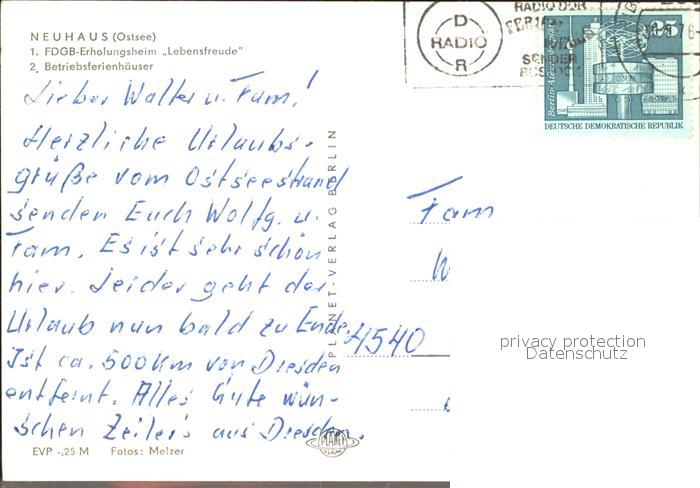 NEUHAUS (Ostsee)
1. FDGB-Erholungsheim „Lebensfreude"
2. Betriebsferienhäuser
Lieber Walter u. Fam.!
Herzliche Urlaubs-
grüße vom Ostseestrand
senden Euch Wolfg. u.
Fam. Es ist sehr schön
hier. Leider geht der
Urlaub nun bald zu Ende.
Ist ca. 500 km von Dresden
entfernt. Alles Gute wün-
schen Zeiler's aus Dresden.
EVP -,25 M Fotos: Melzer
PLANET-VERLAG BERLIN
PLANET
D
RADIO
R
RADIO DDR
FERIEN
WELLE
SENDER
ROSTOCK
25
Berlin-Alexanderplatz
DEUTSCHE DEMOKRATISCHE REPUBLIK
Fam
W
4540
privacy protection
Datenschutz